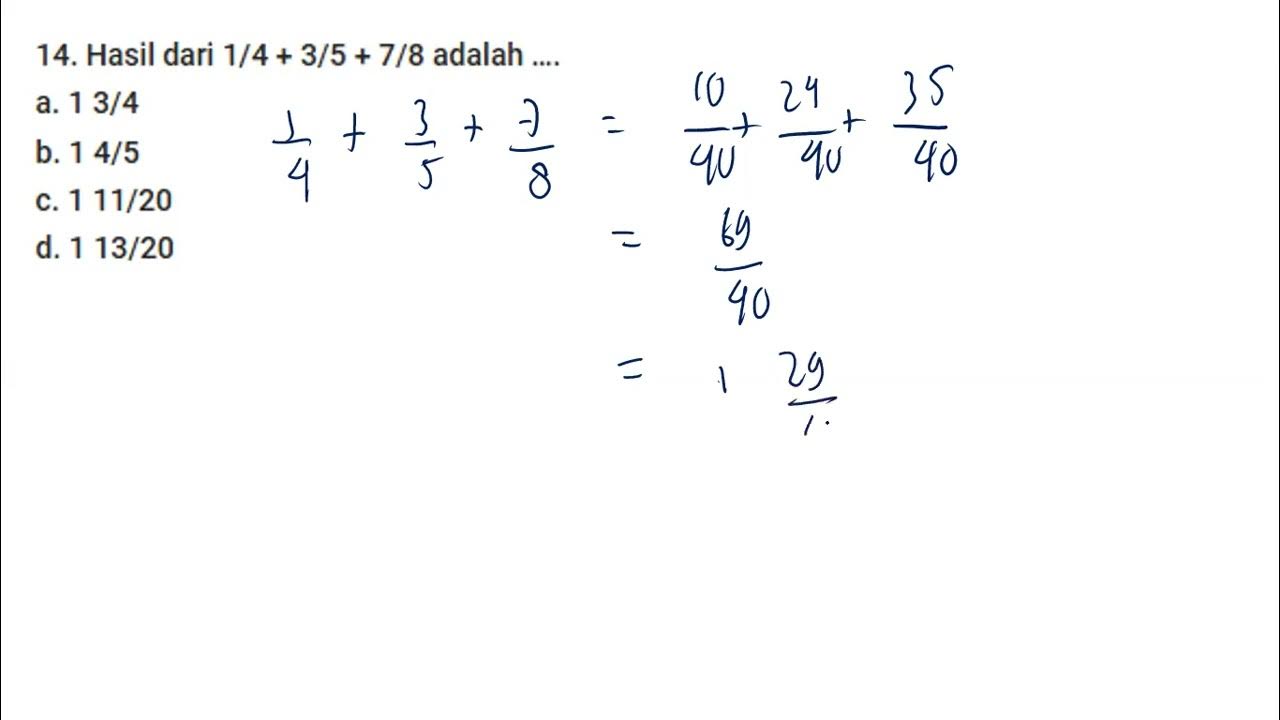 14. Hasil dari 1/4 + 3/5 + 7/8 adalah ....
a. 1 3/4
b. 1 4/5
c. 1 11/20
d. 1 13/20
1/4 + 3/5 + 7/8 = 10/40 + 24/40 + 35/40
= 69/40
= 1 29/